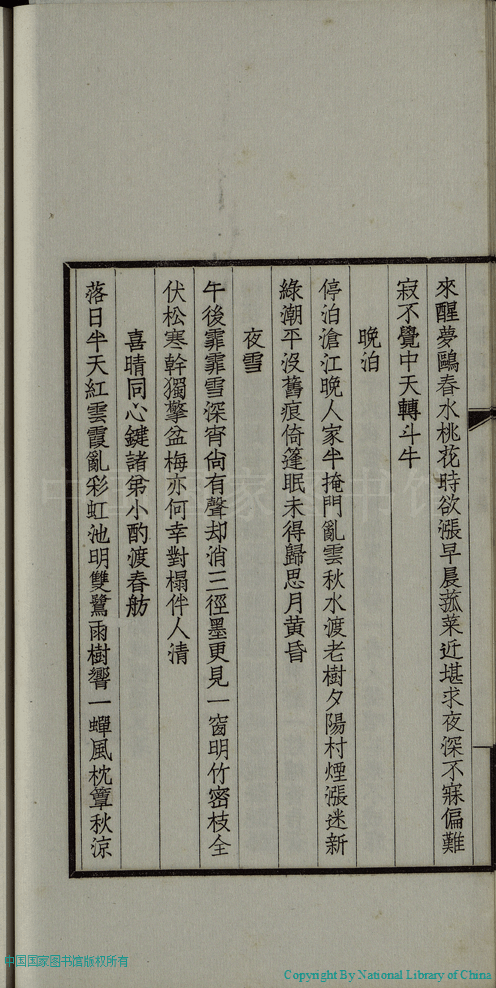 來醒夢鷗春水桃花時欲漲早晨菰菜近堪求夜深不寐偏難
寂不覺中天轉斗牛
晚泊
停泊滄江晚人家半掩門亂雲秋水渡老樹夕陽村煙漲迷新
綠潮平沒舊痕倚篷眠未得歸思月黃昏
夜雪
午後霏霏雪深宵尙有聲却消三徑墨更見一窗明竹密枝全
伏松寒幹獨擎盆梅亦何幸對榻伴人清
喜晴同心鍵諸弟小酌渡春舫
落日半天紅雲霞亂彩虹池明雙鷺雨樹響一蟬風枕簟秋涼
中国国家图书馆
中国国家图书馆版权所有
Copyright By National Library of China